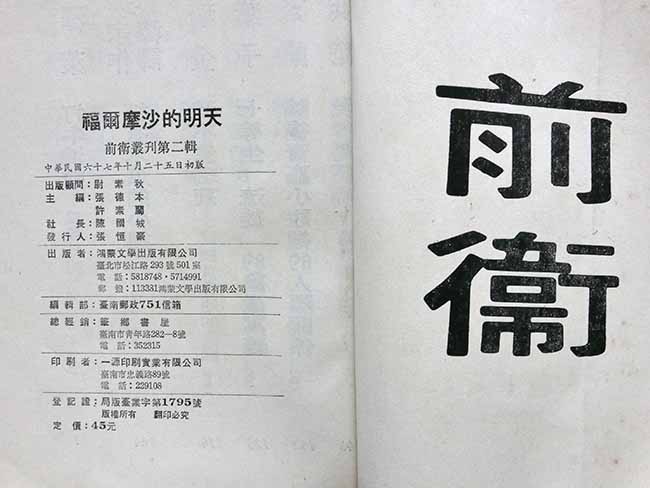 福爾摩沙的明天
前衛叢刊第二輯
中華民國六十七年十月二十五日初版
出版顧問:尉素秋
主編:張德本
許素蘭
社長:陳國城
發行人:張恒豪
出版者:鴻蒙文學出版有限公司
臺北市松江路293號501室
電話:5818748・5714991
郵撥:113381鴻蒙文學出版有限公司
編輯部:臺南郵政751信箱
總經銷:筆鄉書屋
臺南市青年路282—8號
電話:352315
印刷者:一源印刷實業有限公司
臺南市忠義路89號
電話:229108
登記證:局版臺業字第1795號
版權所有 翻印必究
定價:45元
前衛